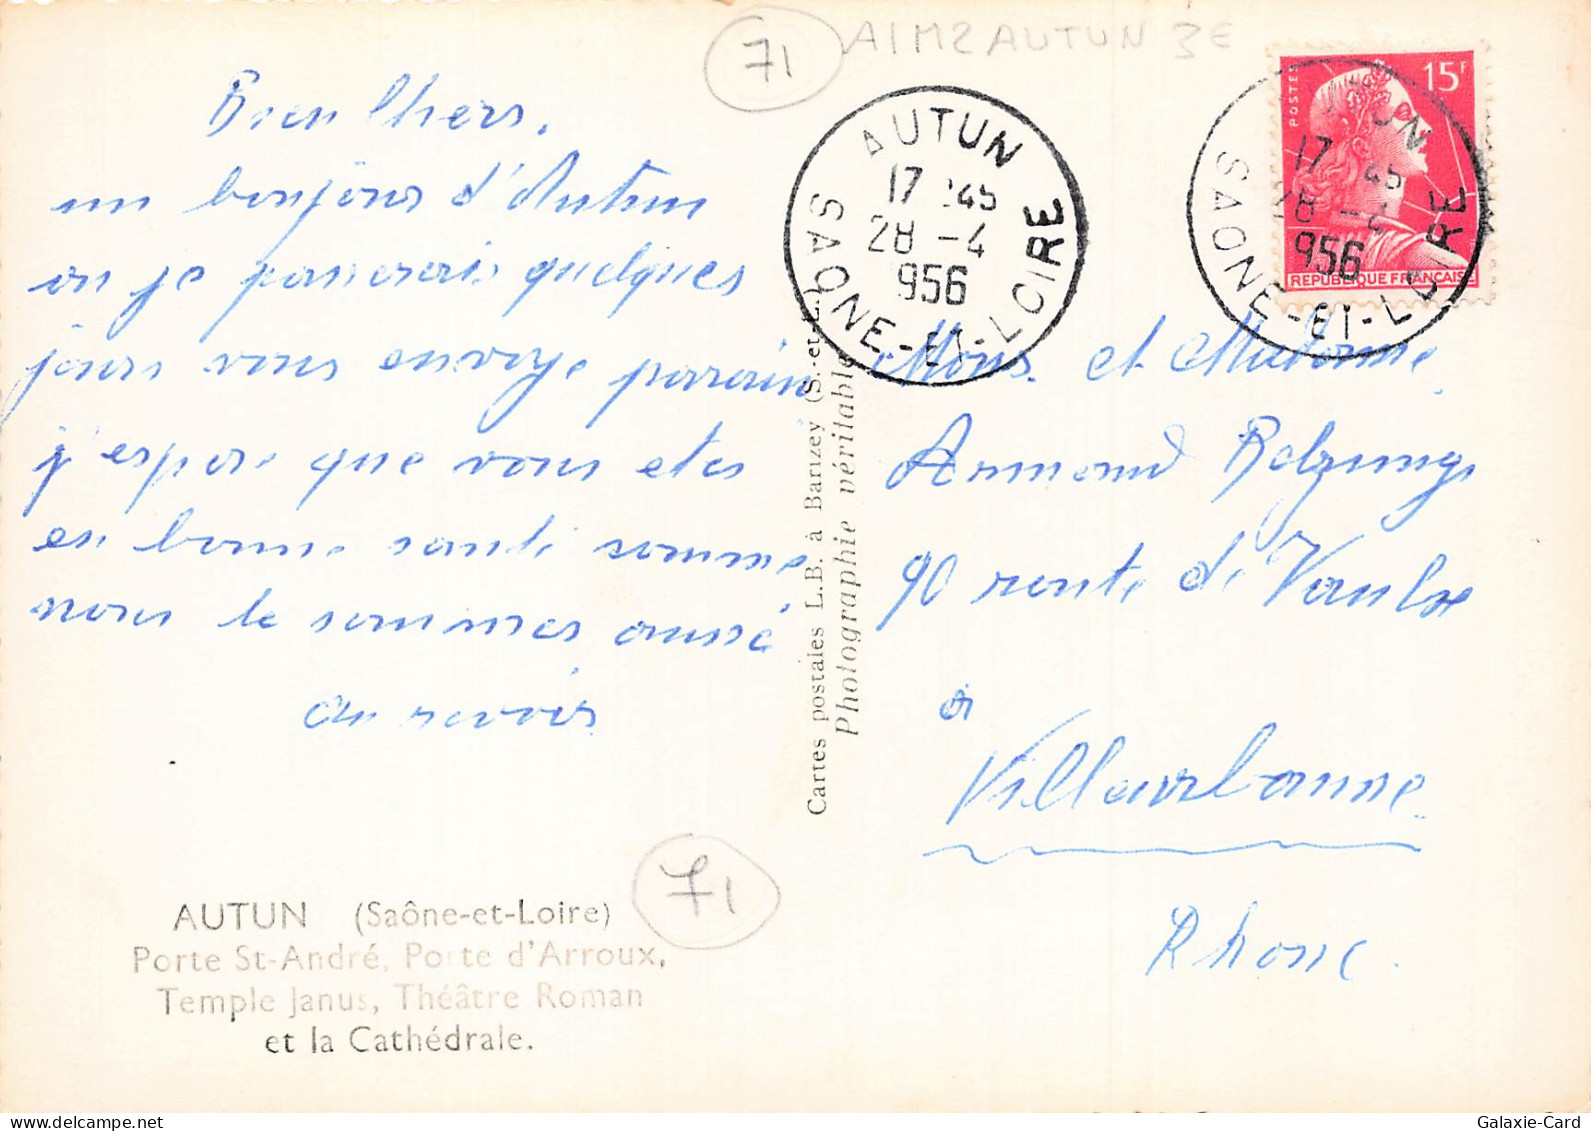 71
A1M2AUTUN 3€
Bien Chers,
un bonjour d'Autun
ou je passerais quelques
jours vous envoye parrain
j'espere que vous etes
en bonne santé somme
nous le sommes aussé
au revoir
AUTUN (Saône-et-Loire)
Porte St-André, Porte d'Arroux,
Temple Janus, Théâtre Roman
et la Cathédrale.
71
Cartes postales L.B. à Barizey (S.-et-L.)
Photographie véritable
AUTUN
17 45
28 -4
956
SAONE-ET-LOIRE
POSTES
15F
REPUBLIQUE FRANÇAISE
17 45
28 -4
956
SAONE-ET-LOIRE
Mons. et Madame
Armand
90 route de Vaulx
à
Villeurbanne
Rhone.
Galaxie-Card